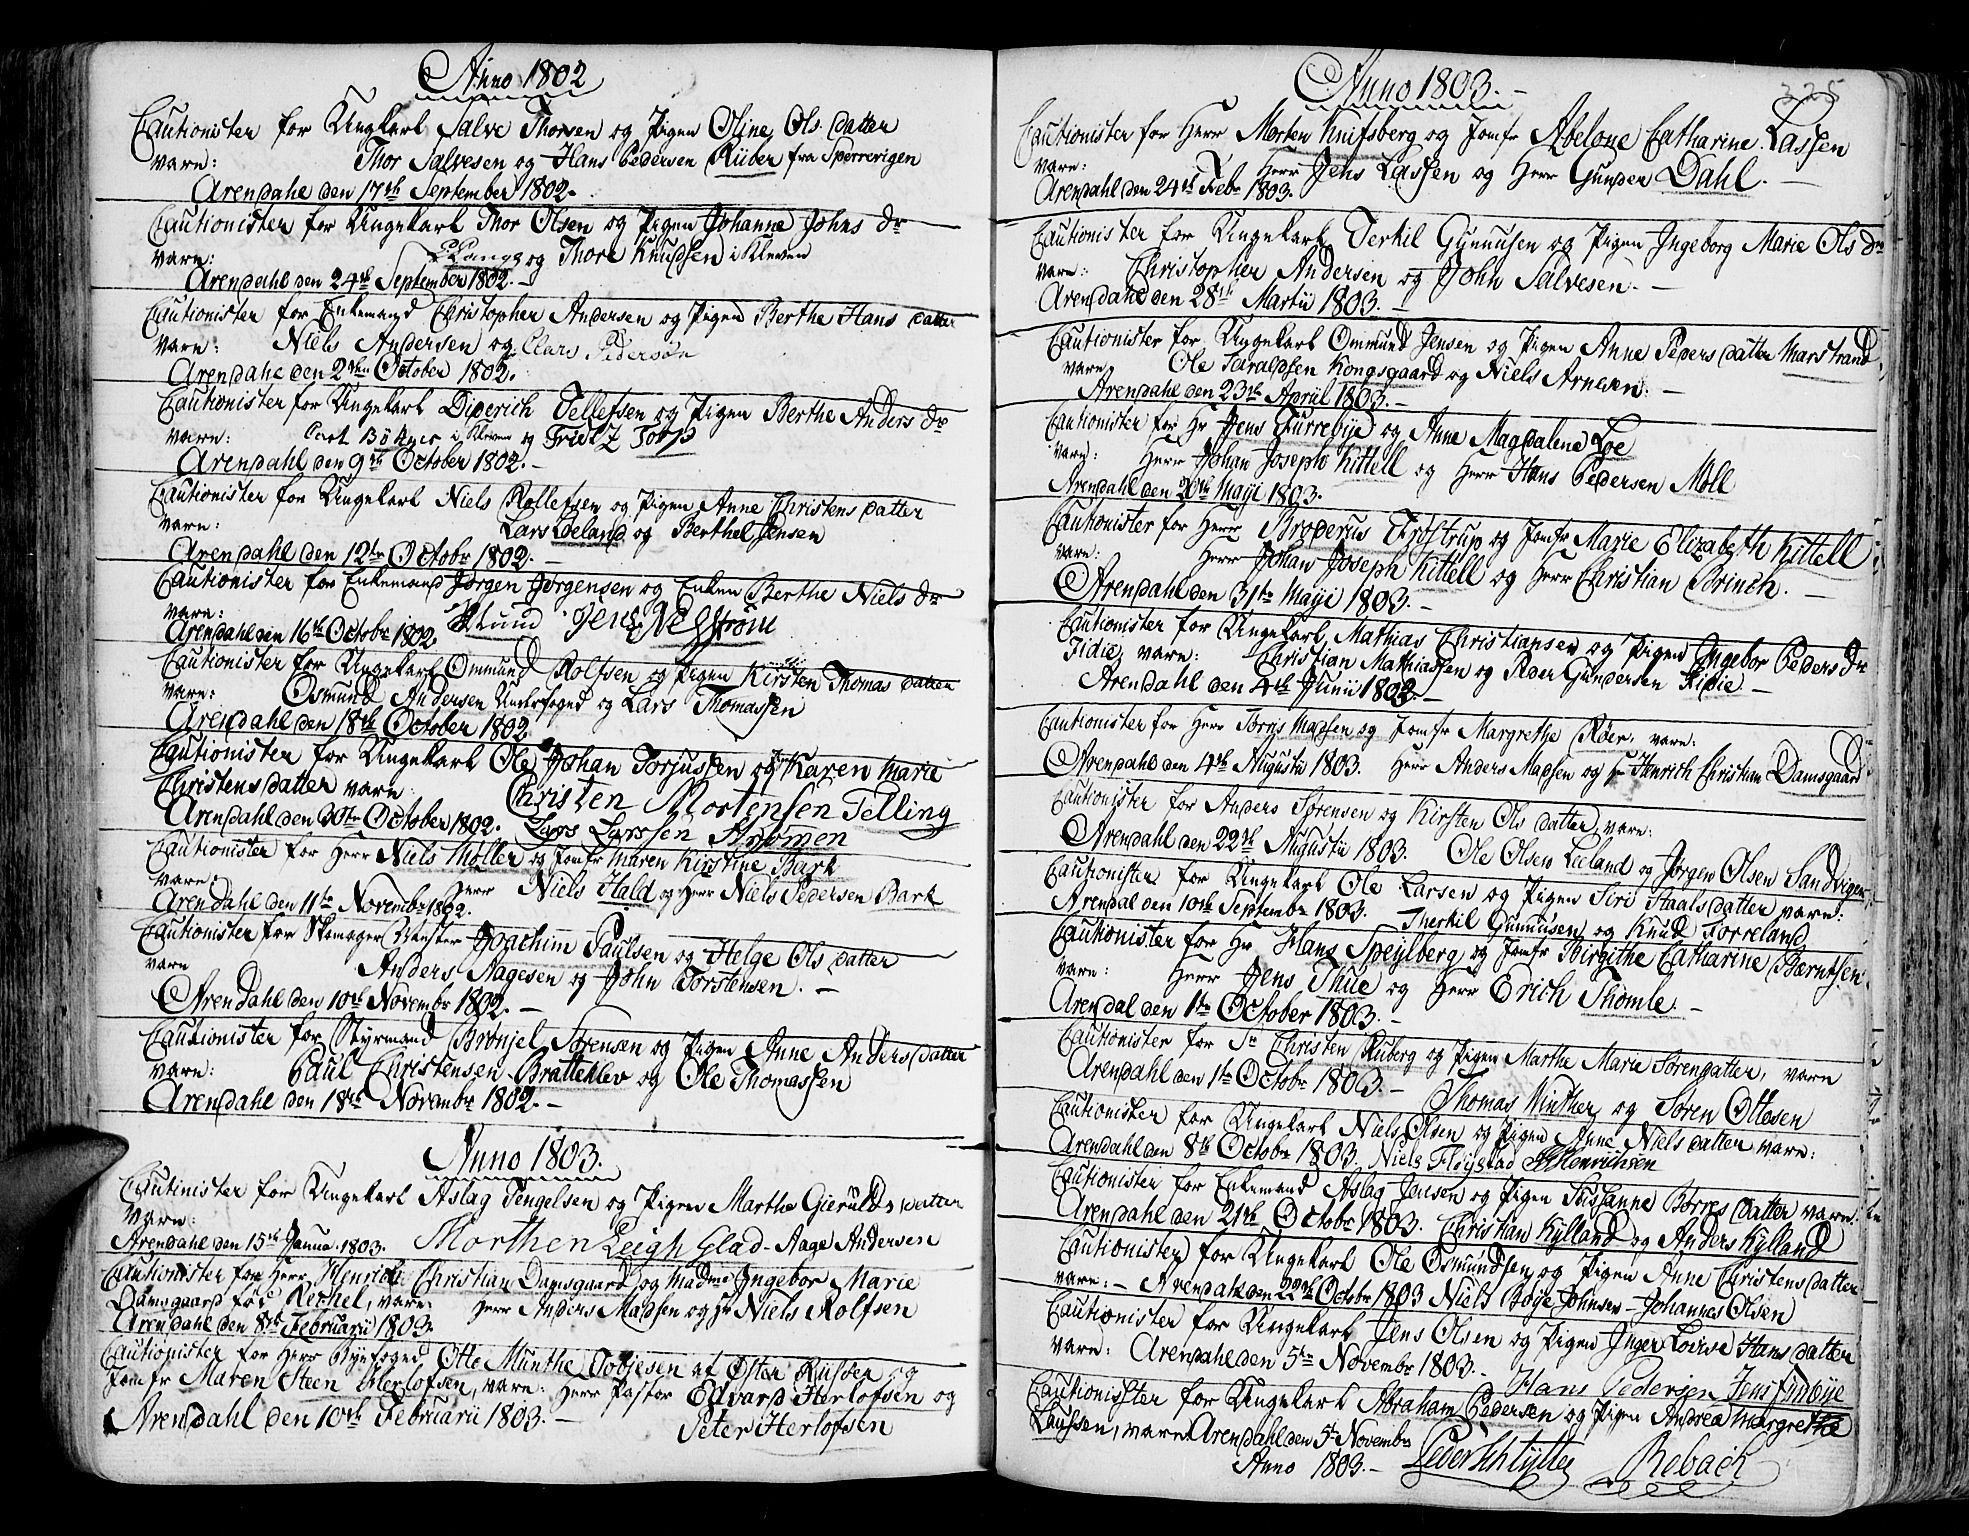 Anno 1802
Cautionister for Ungkarl Salve Thorsen og Pigen Oline Ols datter
vare: Thor Salvesen og Hans Pedersen Rüber fra Sperrevigen
Arendahl den 17th September 1802.
Cautionister for Ungekarl Thor Olsen og Pigen Johanne Johns dr
vare: og Thore Knudsen i Kleven
Arendahl den 24th September 1802.
Cautionister for Enkemand Christopher Andersen og Pigen Berthe Hans datter
vare: Niels Andersen og Clars Pedersøn
Arendahl den 2den October 1802.
Cautionister for Ungekarl Diderich Tellefsen og Pigen Berthe Anders dr
vare: Carl Böhmer i Kleven og Fridz Torp
Arendahl den 9th October 1802.
Cautionister for Ungekarl Niels Rollefsen og Pigen Anne Christens datter
vare: Lars Loeland og Berthel Jensen
Arendahl den 12te Octobr 1802.
Cautionister for Enkemand Jørgen Jørgensen og Enken Berthe Niels dr
vare: Lund Jens Nelstrøm
Arendahl den 16th Octobr 1802.
Cautionister for Ungekarl Ommund Rolfsen og Pigen Kirsten Thomas datter
vare: Osmund Andersen Underfoged og Lars Thomassen
Arendahl den 18th October 1802
Cautionister for Ungekarl Ole Johan Torjussen og Karen Marie
Christensdatter vare Christen Mortensen Telling
Arendahl den 30te October 1802. Lars Larssen Arromen
Cautionister for Herr Niels Møller og Jomfr Maren Kirstine Bark
vare: Herr Niels Hald og Herr Niels Pedersen Bark
Arendahl den 11te Novembr 1802.
Cautionister for Skomager Mester Joachim Paulsen og Helge Ols datter
vare Anders Aagesen og John Torstensen.
Arendahl den 10th Novembr 1802.
Cautionister for Styrmand Brønjel Sørensen og Pigen Anne Anders datter
vare: Paul Christensen Bratteklev og Ole Thomassen
Arendahl den 18th Novembr 1802.
Anno 1803.
Cautinister for Ungekarl Aslag Tengelsen og Pigen Marthe Gierulds datter
vare:
Arendahl den 15th Janua. 1803. Morthen Leigh Glad - Aage Andersen
Cautionister for Herr Henrich Christian Damsgaard og Madme Ingebor Marie
Damsgaard fød Kerhel, vare: Herr Anders Madsen og Hr Niels Rolfsen
Arendahl den 8th Februarii 1803.
Cautionister for Herr Byefoged Otte Munthe Tobiesen af Øster Riisøer og
Jomfr Maren Steen Herlofsen, vare: Herr Pastor Edvard Herlofsen og
Arendahl den 10th Februarii 1803. Peter Herlofsen
Anno 1803.
325
Cautionister for Herr Morten Knifsberg og Jomfr Abelone Catharine Lassen
vare: Herr Jens Lassen og Herr Gunder Dahl.
Arendahl den 24th Febr 1803.
Cautionister for Ungekarl Terkil Gunnufsen og Pigen Ingeborg Marie Ols dr
vare: Christopher Andersen og John Salvesen.
Arendahl den 28th Martii 1803.
Cautionister for Ungekarl Ommund Jensen og Pigen Anne Peders datter Marstrand
vare Ole Taraldsen Kongsgaard og Niels Arnesen:
Arendahl den 23th April 1803.
Cautionister for Hr Jens Furrebye og Anne Magdalena Loe
vare: Herr Johan Joseph Kittell og Herr Hans Pedersen Moll
Arendahl den 20th Maji 1803.
Cautionister for Herr Broderus Trydstrup og Jomfr Marie Elizabeth Kittell
vare: Herr Johan Joseph Kittell og Herr Christian Brinch.
Arendahl den 31te Maji 1803.
Cautionister for Ungekarl Mathias Christiansen og Pigen Ingebor Peders dr
Fidie, vare: Christian Mathiassen og Peder Gundersen Fidie
Arendahl den 4th Junii 1802.
Cautionister for Herr Tørris Madsen og Jomfr Margrethe Röer, vare:
Arendahl den 4th Augustii 1803. Herr Anders Madsen og Hr Henrich Christian Damsgaard
Cautionister for Anders Sørensen og Kirsten Ols datter, vare:
Arendahl den 22th Augustii 1803. Ole Olsen Leeland og Jørgen Olsen Sandvigen
Cautionister for Ungekarl Ole Larsen og Pigen Siri Staals datter vare:
Arendal den 10th Septembr 1803. Therkil Gunnufsen og Knud Torreland
Cautionister for Hr. Hans Speylberg og Jomfr Birgithe Catharine Bærntsen.
vare: Herr Jens Thue og Herr Erich Thomle.
Arendal den 1te October 1803.
Cautionister for Sr Christen Ruberg og Pigen Marthe Marie Sørendatter, vare
Arendahl den 1te Octobr 1803. Thomas Winther og Søren Ottesen
Cautionister for Ungekarl Niels Olsen og Pigen Anne Niels datter vare:
Arendahl den 8th Octobr 1803. Niels Fløystad Henrichsen
Cautionister for Enkemand Aslag Jensen og Pigen Susanne Børres datter vare:
Arendahl den 21th Octobr 1803. Christian Kylland og Anders Kylland
Cautionister for Ungekarl Ole Osmundsen og Pigen Anne Christens datter
vare: - Arendahl den 22th Octobr 1803 Niels Boye Johnsen - Johannes Olsen
Cautionister for Ungekarl Jens Olsen og Pigen Inger Lovise Hans datter
vare: Arendahl den 5te Novembr 1803. Hans Pedersen Jens Finbye
Cautionister for Ungekarl Abraham Pedersen og Pigen Andrea Margrethe
Lausen, vare Arendahl den 5te Novembr
Anno 1803. - Peder Schlytter Rebach